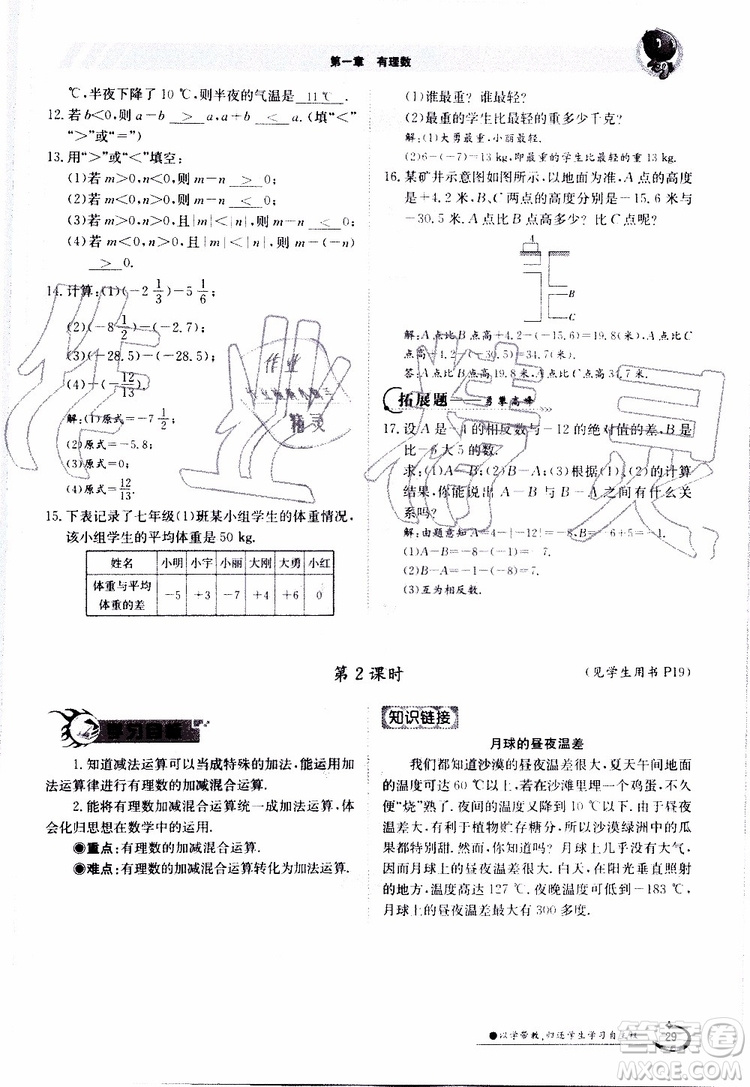 第一章 有理数
℃,半夜下降了 10 ℃,则半夜的气温是 11 ℃ .
12. 若 b<0,则 a-b > a,a+b < a.(填“<”
“>”或“=”)
13. 用“>”或“<”填空:
(1)若 m>0,n<0,则 m-n > 0;
(2)若 m<0,n>0,则 m-n < 0;
(3)若 m>0,n<0,且|m|<|n|,则 m-n
> 0;
(4)若 m<0,n>0,且|m|<|n|,则 n-m
> 0.
14. 计算:(1)(-2 1/3)-5 1/6;
(2)(-8 1/2)-(-2.7);
(3)(-28.5)-(-28.5);
(4)-(-12/13).
解:(1)原式=-7 1/2;
(2)原式=-5.8;
(3)原式=0;
(4)原式=12/13.
15. 下表记录了七年级(1)班某小组学生的体重情况,
该小组学生的平均体重是 50 kg.
姓名 小明 小宇 小丽 大刚 大勇 小红
体重与平均体重的差 -5 +3 -7 +4 +6 0
(1)谁最重?谁最轻?
(2)最重的学生比最轻的重多少千克?
解:(1)大勇最重,小丽最轻.
(2)6-(-7)=13 kg,即最重的学生比最轻的学生重 13 kg.
16. 某矿井示意图如图所示,以地面为准,A 点的高度
是+4.2 米,B、C 两点的高度分别是-15.6 米与
-30.5 米.A 点比 B 点高多少?比 C 点呢?
B
C
解:A 点比 B 点高+4.2-(-15.6)=19.8(米),
A 点比 C 点高+4.2-(-30.5)=34.7(米).
答:A 点比 B 点高 19.8 米,比 C 点高 34.7 米.
拓展题 勇攀高峰
17. 设 A 是-4 的相反数与-12 的绝对值的差,B 是
比-6 大 5 的数.
求:(1)A-B;(2)B-A;(3)根据(1)(2)的计算
结果,你能说出 A-B 与 B-A 之间有什么关
系吗?
解:由题意知 A=4-|-12|=-8,B=-6+5=-1.
(1)A-B=-8-(-1)=-7.
(2)B-A=-1-(-8)=7.
(3)互为相反数.
第 2 课时
(见学生用书 P19)
学习目标
1. 知道减法运算可以当成特殊的加法,能用加
法运算律进行有理数的加减混合运算.
2. 能将有理数加减混合运算统一成加法运算,体
会化归思想在数学中的运用.
●重点:有理数的加减混合运算.
●难点:有理数的加减混合运算转化为加法运算.
知识链接
月球的昼夜温差
我们都知道沙漠的昼夜温差很大,夏天午间最高
的温度可以达到 60 ℃,在沙滩里埋一个鸡蛋,不久
便“烧”熟了.夜间的温度又降到 10 ℃以下.由于昼夜
温差大,有利于植物贮存糖分,所以沙漠绿洲中的瓜
果都特别甜.你知道吗?月球上几乎没有大气,因
而月球上的昼夜温差很大.白天,在阳光垂直照射
的地方,温度高达 127 ℃.夜晚温度可低到-183 ℃,
月球上的昼夜温差最大有 300 多度.
●以学带教,归还学生学习自主权
29
作业
精灵
作业精灵
答案圈
MXQE.COM